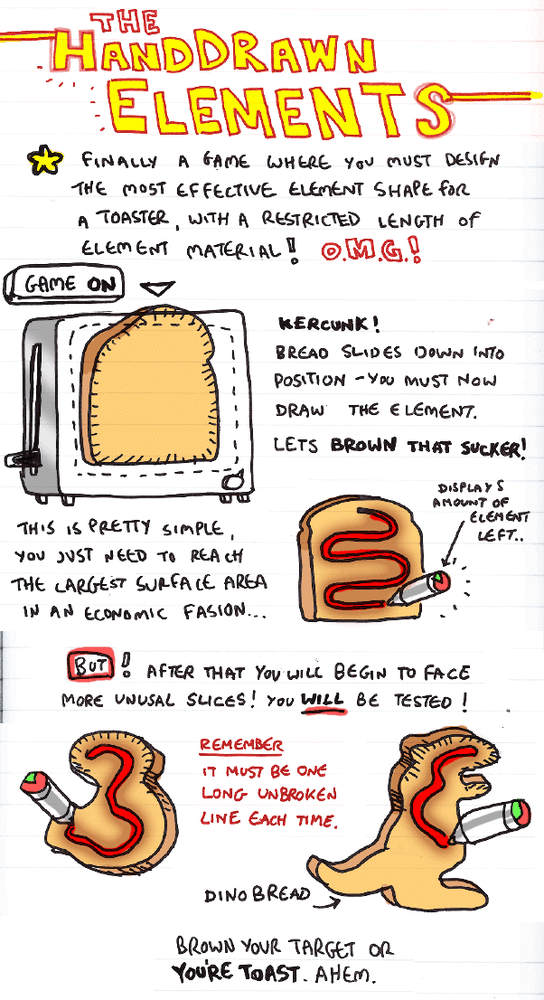 THE
HANDDRAWN
ELEMENTS
FINALLY A GAME WHERE YOU MUST DESIGN
THE MOST EFFECTIVE ELEMENT SHAPE FOR
A TOASTER, WITH A RESTRICTED LENGTH OF
ELEMENT MATERIAL! O.M.G.!
GAME ON
KERCUNK!
BREAD SLIDES DOWN INTO
POSITION - YOU MUST NOW
DRAW THE ELEMENT.
LETS BROWN THAT SUCKER!
DISPLAYS
AMOUNT OF
ELEMENT
LEFT..
THIS IS PRETTY SIMPLE,
YOU JUST NEED TO REACH
THE LARGEST SURFACE AREA
IN AN ECONOMIC FASION...
BUT! AFTER THAT YOU WILL BEGIN TO FACE
MORE UNUSUAL SLICES! YOU WILL BE TESTED!
REMEMBER
IT MUST BE ONE
LONG UNBROKEN
LINE EACH TIME.
DINO BREAD
BROWN YOUR TARGET OR
YOU'RE TOAST. AHEM.